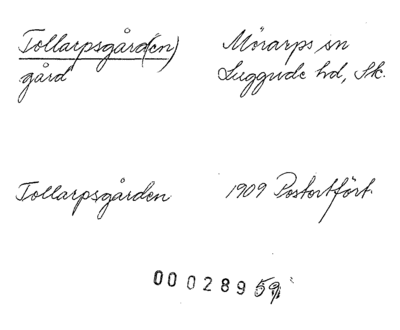 Tollarpsgård(en) Mörarps sn
gård Luggude hd, Sk.
Tollarpsgården 1909 Postortfört.
000289 59